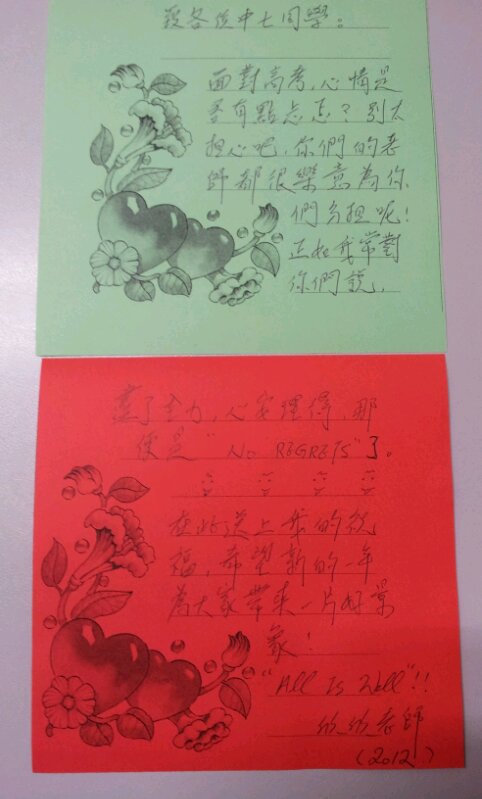 致各位中七同學。
面對高考，心情是
否有點忐忑？別太
担心吧，你們的老
師都很樂意為你
們分担呢！
正如我常對
你們說，
盡了全力，心安理得，那
便是“No REGRETS”了。
在此送上我的祝
福，希望新的一年
為大家帶來一片好景
象！
“All Is Well”!!
老師
(2012)